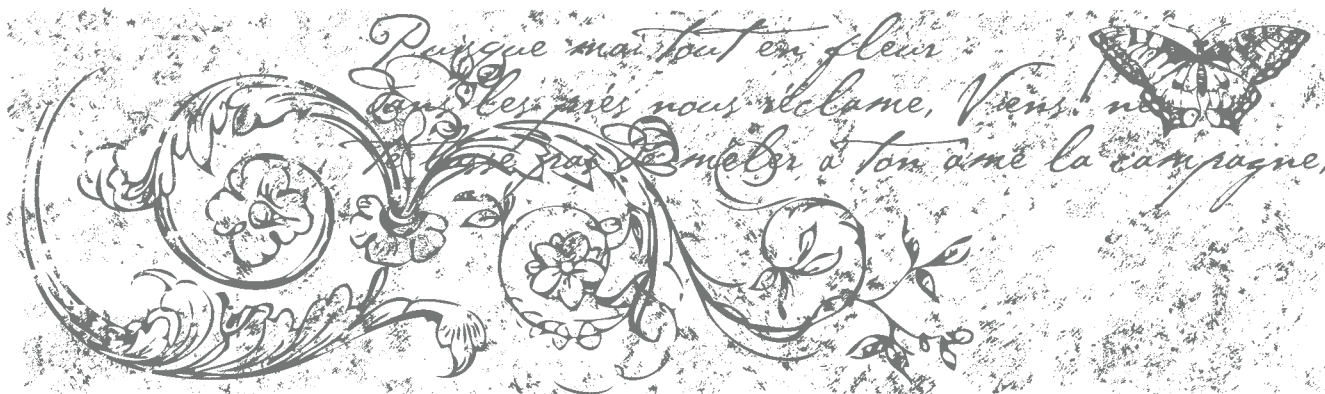 Puisque mai tout en fleur
dans les prés nous réclame, Viens! ne
pas de mêler à ton âme la campagne,